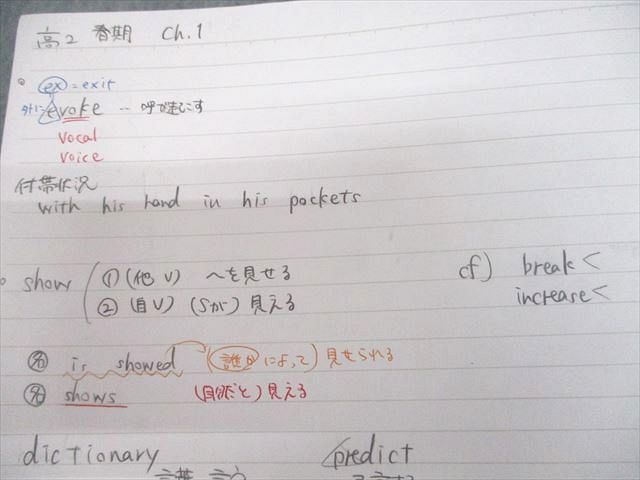 高2 春期 Ch.1
ex = exit
外に evoke … 呼び起こす
vocal
voice
付帯状況
with his hand in his pockets
show ① (他V) 〜を見せる
② (自V) (Sが) 見える
cf) break <
increase <
名 is showed (誰かによって) 見せられる
名 shows (自然と) 見える
dictionary
predict
言葉 言う